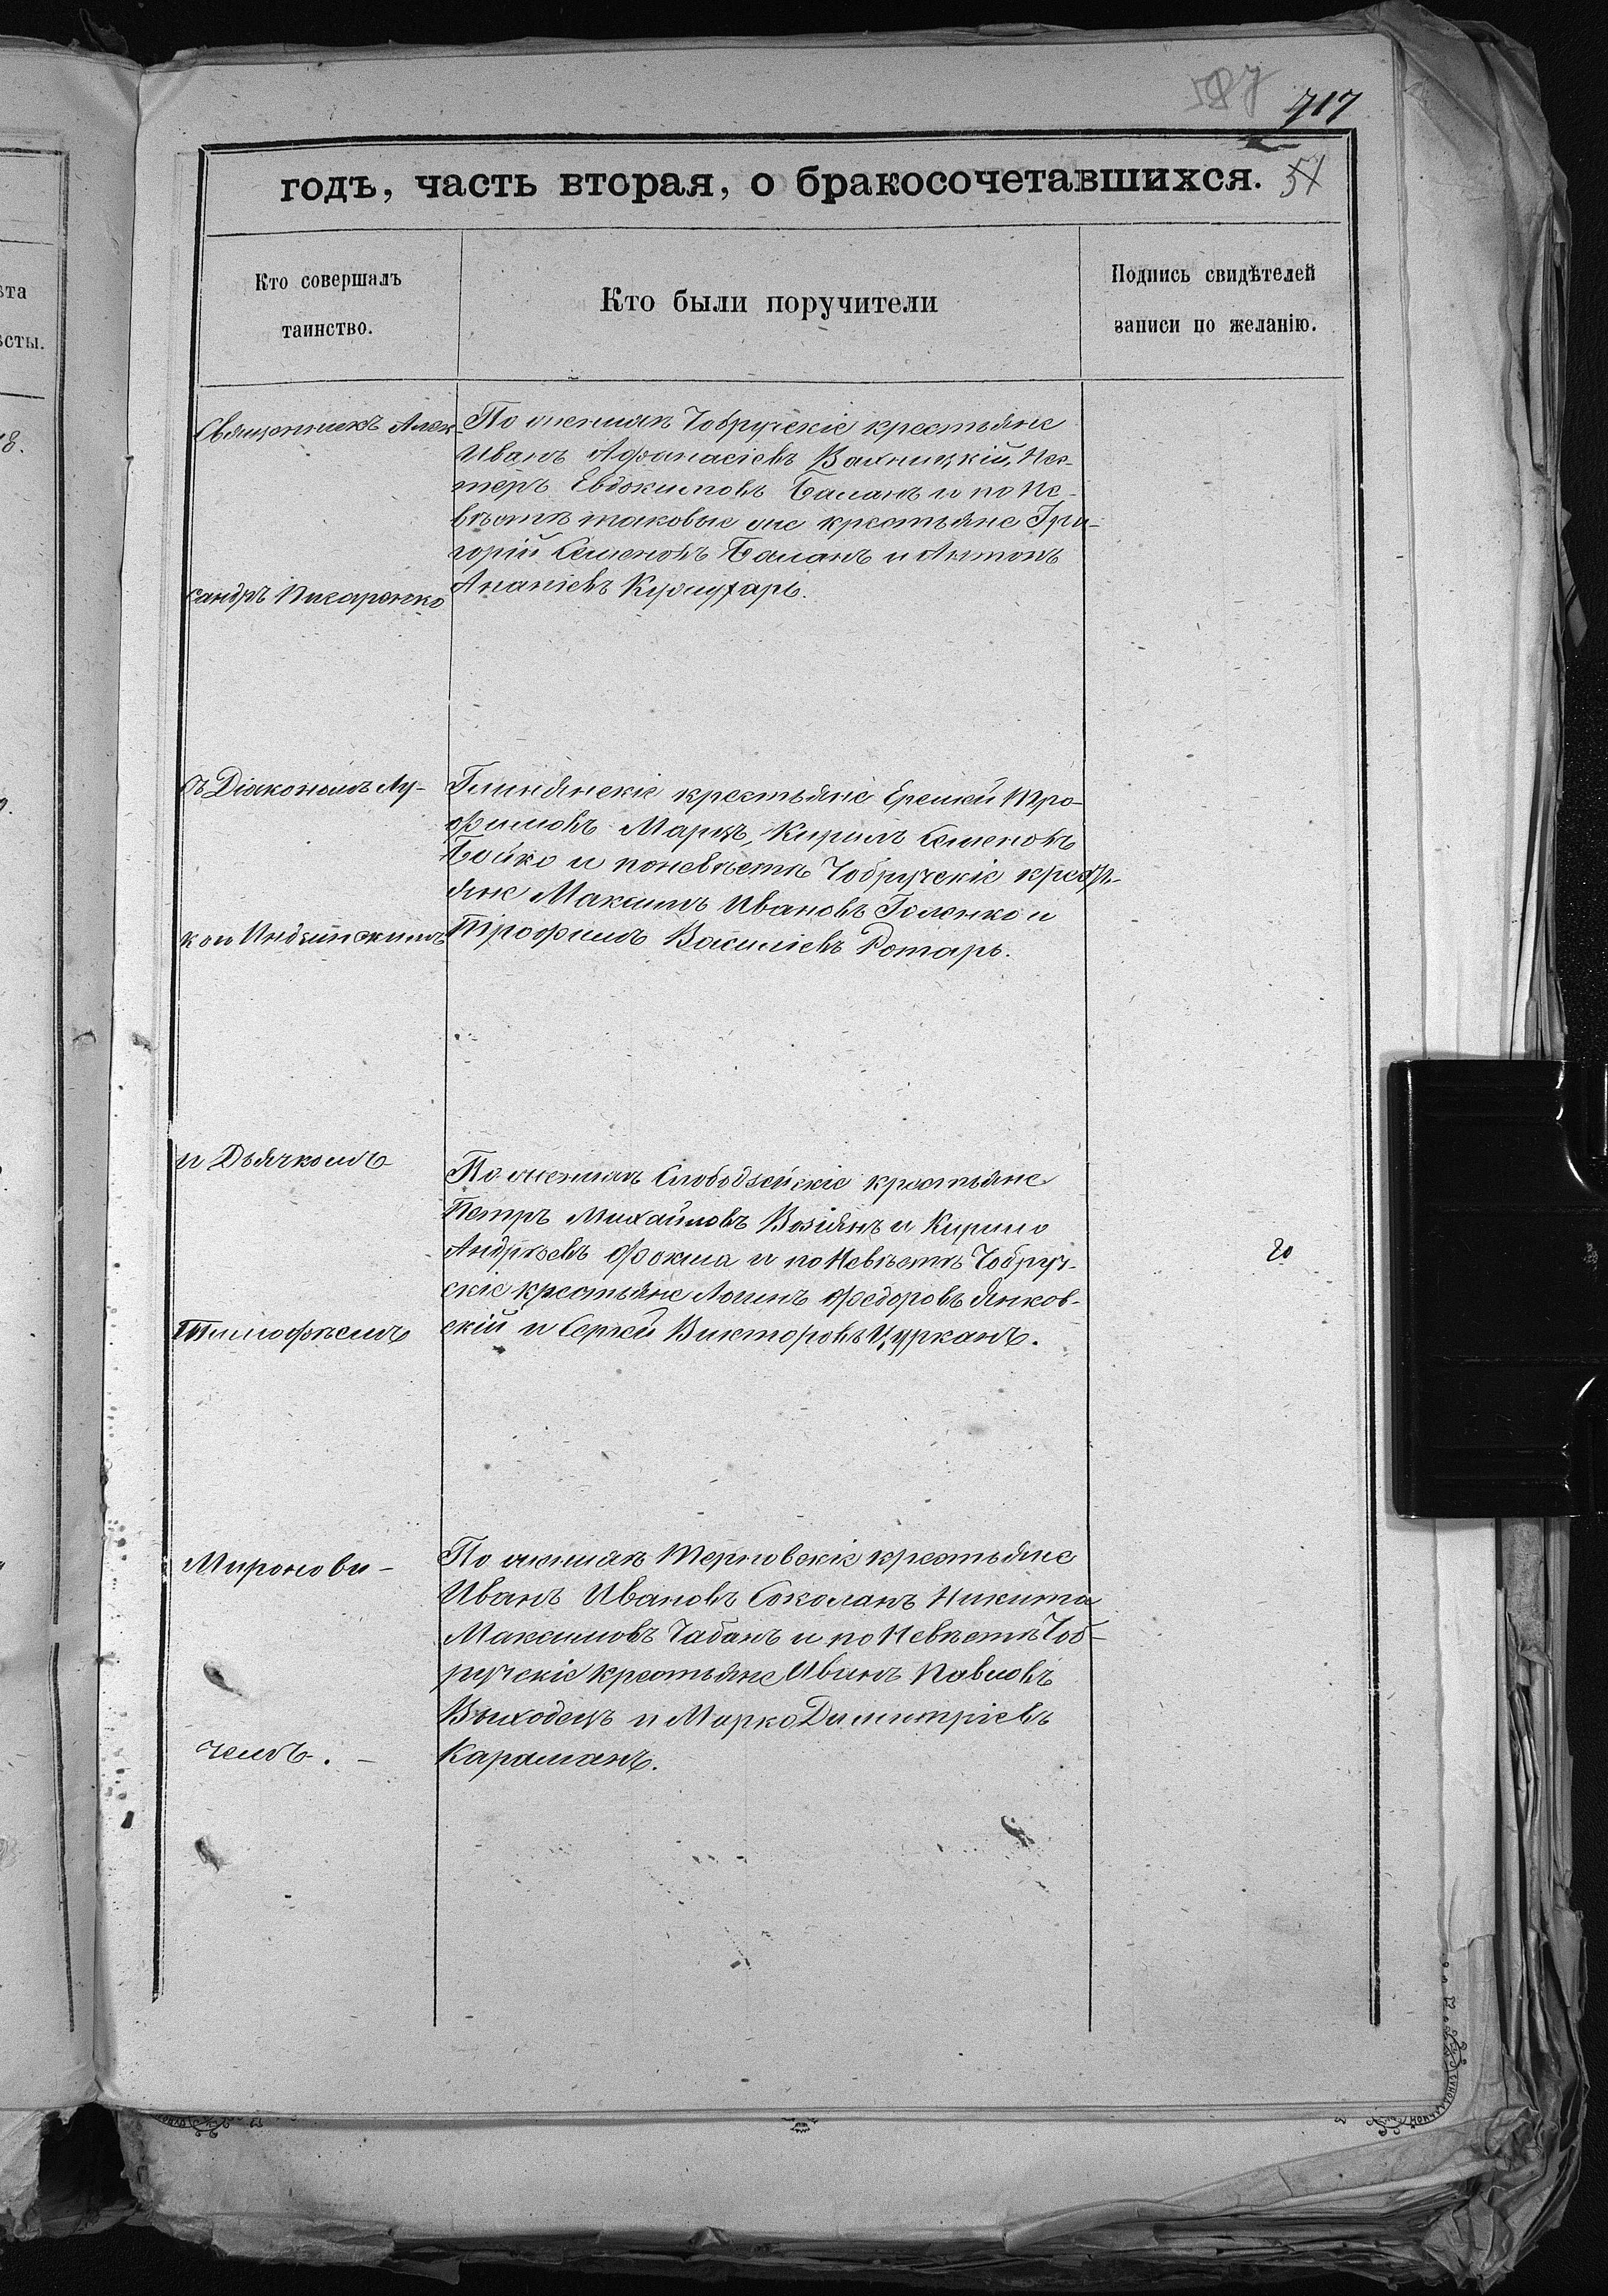 717
51
годъ, часть вторая, о бракосочетавшихся.
Кто совершалъ
таинство.
Кто были поручители
Подпись свидѣтелей
записи по желанію.
Священникъ Алек-
сандръ Писаренко
съ Діакономъ Лу-
кою Индзинскимъ
и Дьячкомъ
Тимофѣемъ
Миронови-
чемъ.
По женихѣ Чобручскіе крестьяне
Иванъ Афанасіевъ Вахницкій, Нес-
теръ Евдокимовъ Баланъ и по не-
вѣстѣ таковые же крестьяне Гри-
горій Семеновъ Баланъ и Антонъ
Ананіевъ
Глинянскіе крестьяне Еремей Тро-
фимовъ Марцъ, Кирилъ Семеновъ
Бойко и поневѣстѣ Чобручскіе кресть-
яне Максимъ Ивановъ Голенко и
Трофимъ Василіевъ Ротарь.
По женихѣ Слободзейскіе крестьяне
Петръ Михайловъ Возіянъ и Кирило
Андрѣевъ Фокша и по Невѣстѣ Чобруч-
скіе крестьяне Логинъ Федоровъ Янков-
скій и Сергѣй Викторовъ Цурканъ.
20
По женихѣ Терновскіе крестьяне
Иванъ Ивановъ Соколанъ Никита
Максимовъ Чабанъ и по Невѣстѣ Чоб-
ручскіе крестьяне Иванъ Павловъ
Выходецъ и Марко Димитріевъ
Караманъ.